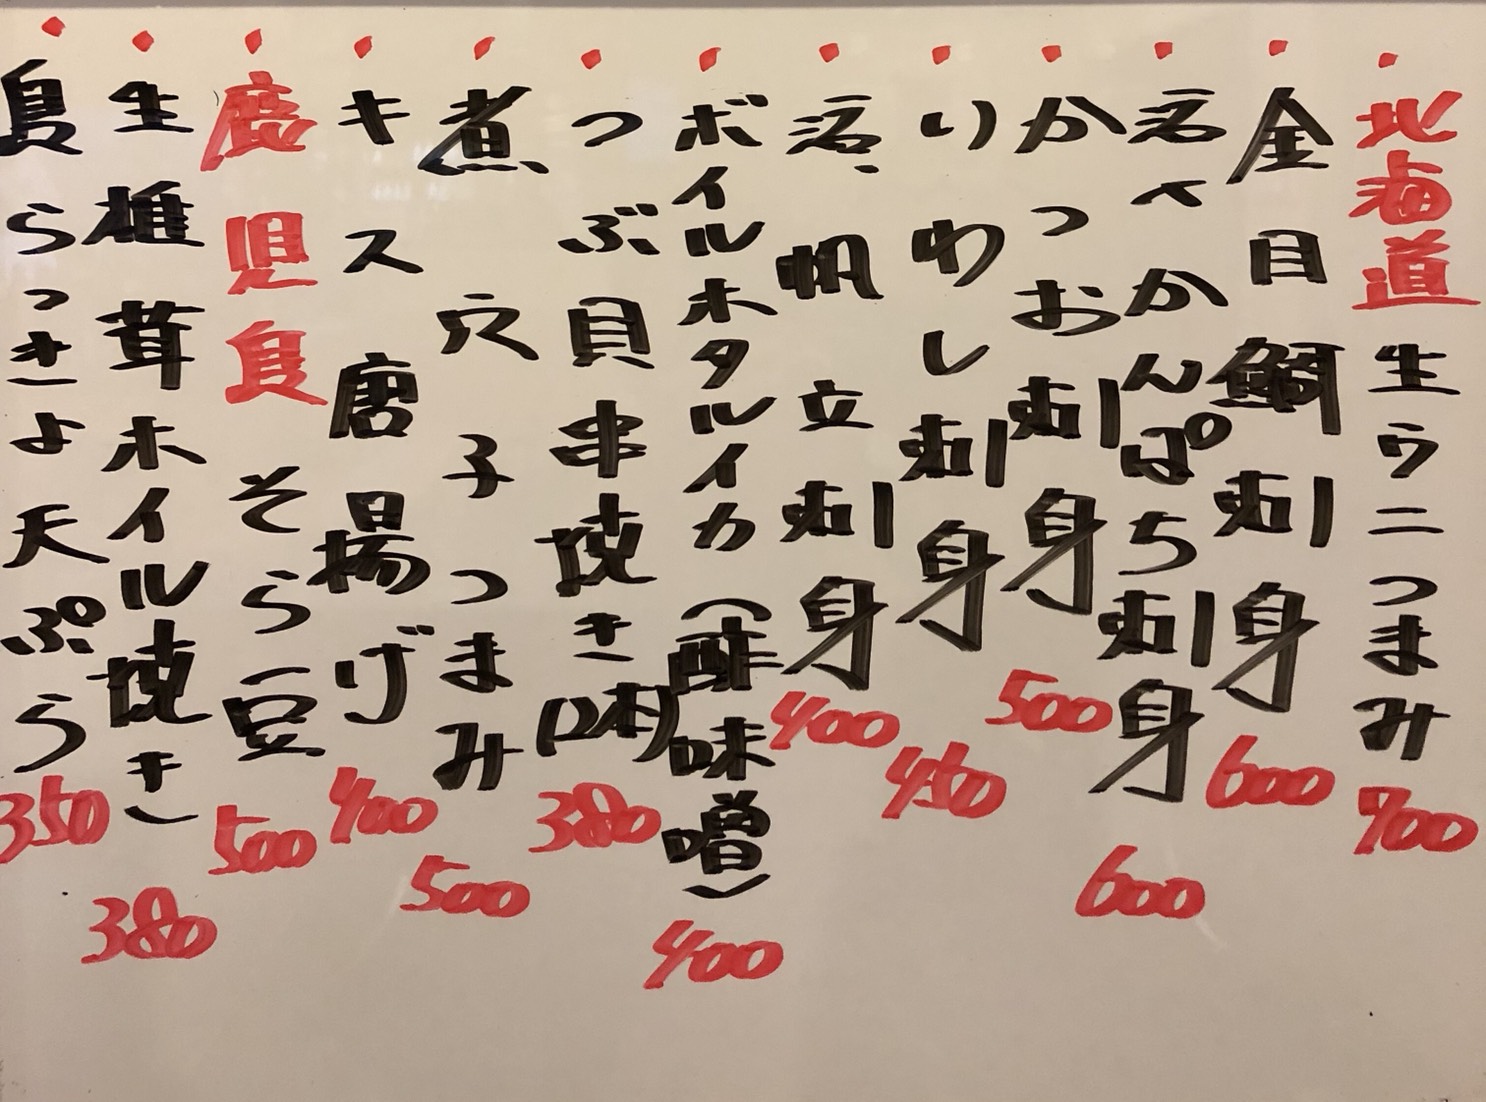 北海道生ウニつまみ 700
金目鯛刺身 600
かんぱち刺身 600
かつお刺身 500
いわし刺身 450
活帆立刺身 400
ボイルホタルイカ(酢味噌) 400
つぶ貝串焼き(2本) 380
煮穴子つまみ 500
キス唐揚げ 400
鹿児島そら豆 500
生椎茸ホイル焼き 380
島らっきょ天ぷら 350